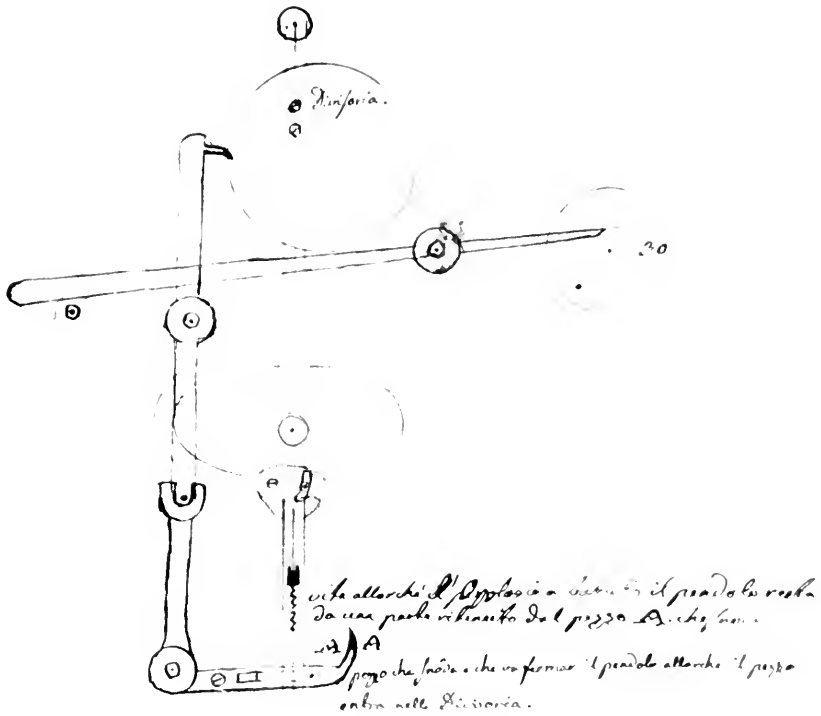 Divisoria.
30
vita allorché l' a il pendolo resta
da una parte ritenuto dal pezzo A. che
A A
pezzo che e che va fermar il pendolo allorche il pezzo
entra nella Divisoria.